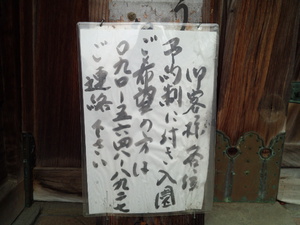 御客様各位
予約制に付き入園
ご希望の方は
〇九〇ー五六四八ー八九二七
ご連絡下さい